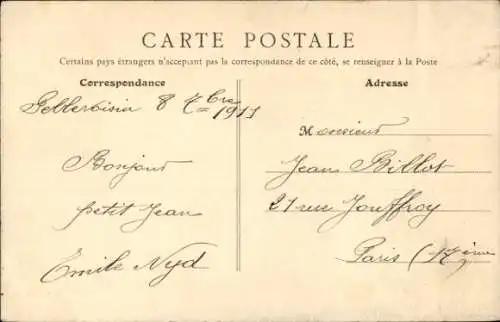 CARTE POSTALE
Certains pays étrangers n'acceptant pas la correspondance de ce côté, se renseigner à la Poste
Correspondance
Adresse
8 7bre 1911
Bonjour
petit Jean
Emile Nyd
Monsieur
Jean Billot
21 rue Jouffroy
Paris (17ème